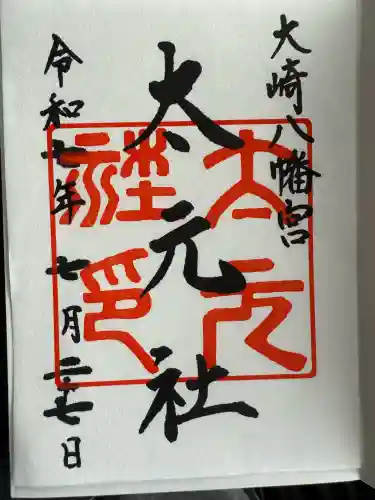 大崎八幡宮
太元社
令和七年七月二十七日
太元社印